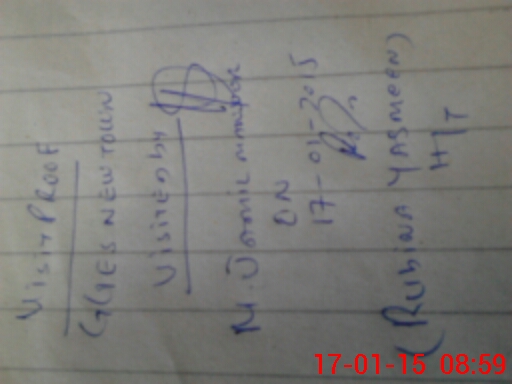 Visit PROOF
GGES NEW TOWN
Visited by
M.
ON
17-01-2015
(RUBINA YASMEEN)
H/T
17-01-15 08:59